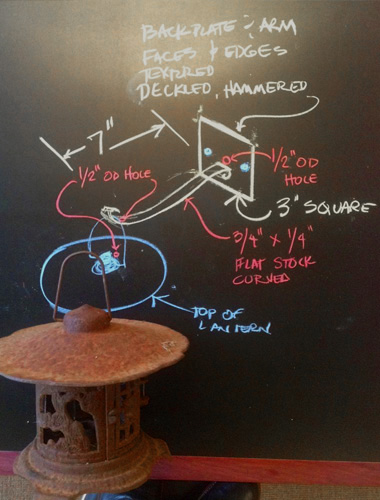 BACKPLATE & ARM
FACES & EDGES
TEXURED
DECKLED, HAMMERED
7"
1/2" OD HOLE
1/2" OD
HOLE
3" SQUARE
3/4" x 1/4"
FLAT STOCK
CURVED
TOP OF
LANTERN